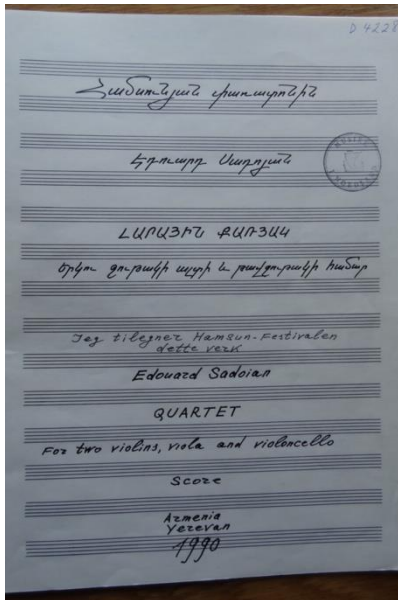 D 4228
Համսունյան փառատոնին
Էդուարդ Սադոյան
ԼԱՐԱՅԻՆ ՔԱՌՅԱԿ
երկու ջութակի ալտի և թավջութակի համար
Jeg tilegner Hamsun-Festivalen
dette verk
Edouard Sadoian
QUARTET
For two violins, viola and violoncello
Score
Armenia
Yerevan
1990